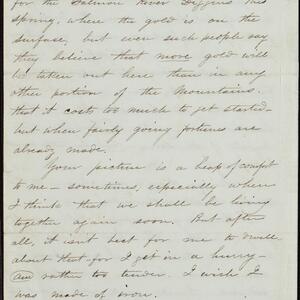 for the Salmon River Diggins this
spring, where the gold is on the
surface, but even such people say
they believe that more gold will
be taken out here than in any
other portion of the Mountains.
that it costs too much to get started—
but when fairly going fortunes are
already made.
Your picture is a heap of comfort
to me — sometimes, especially when
I think that we shall be living
together again soon. But after
all, it isn't best for me to dwell
about that for I get in a hurry—
am rather too tender. I wish I
was made of iron.